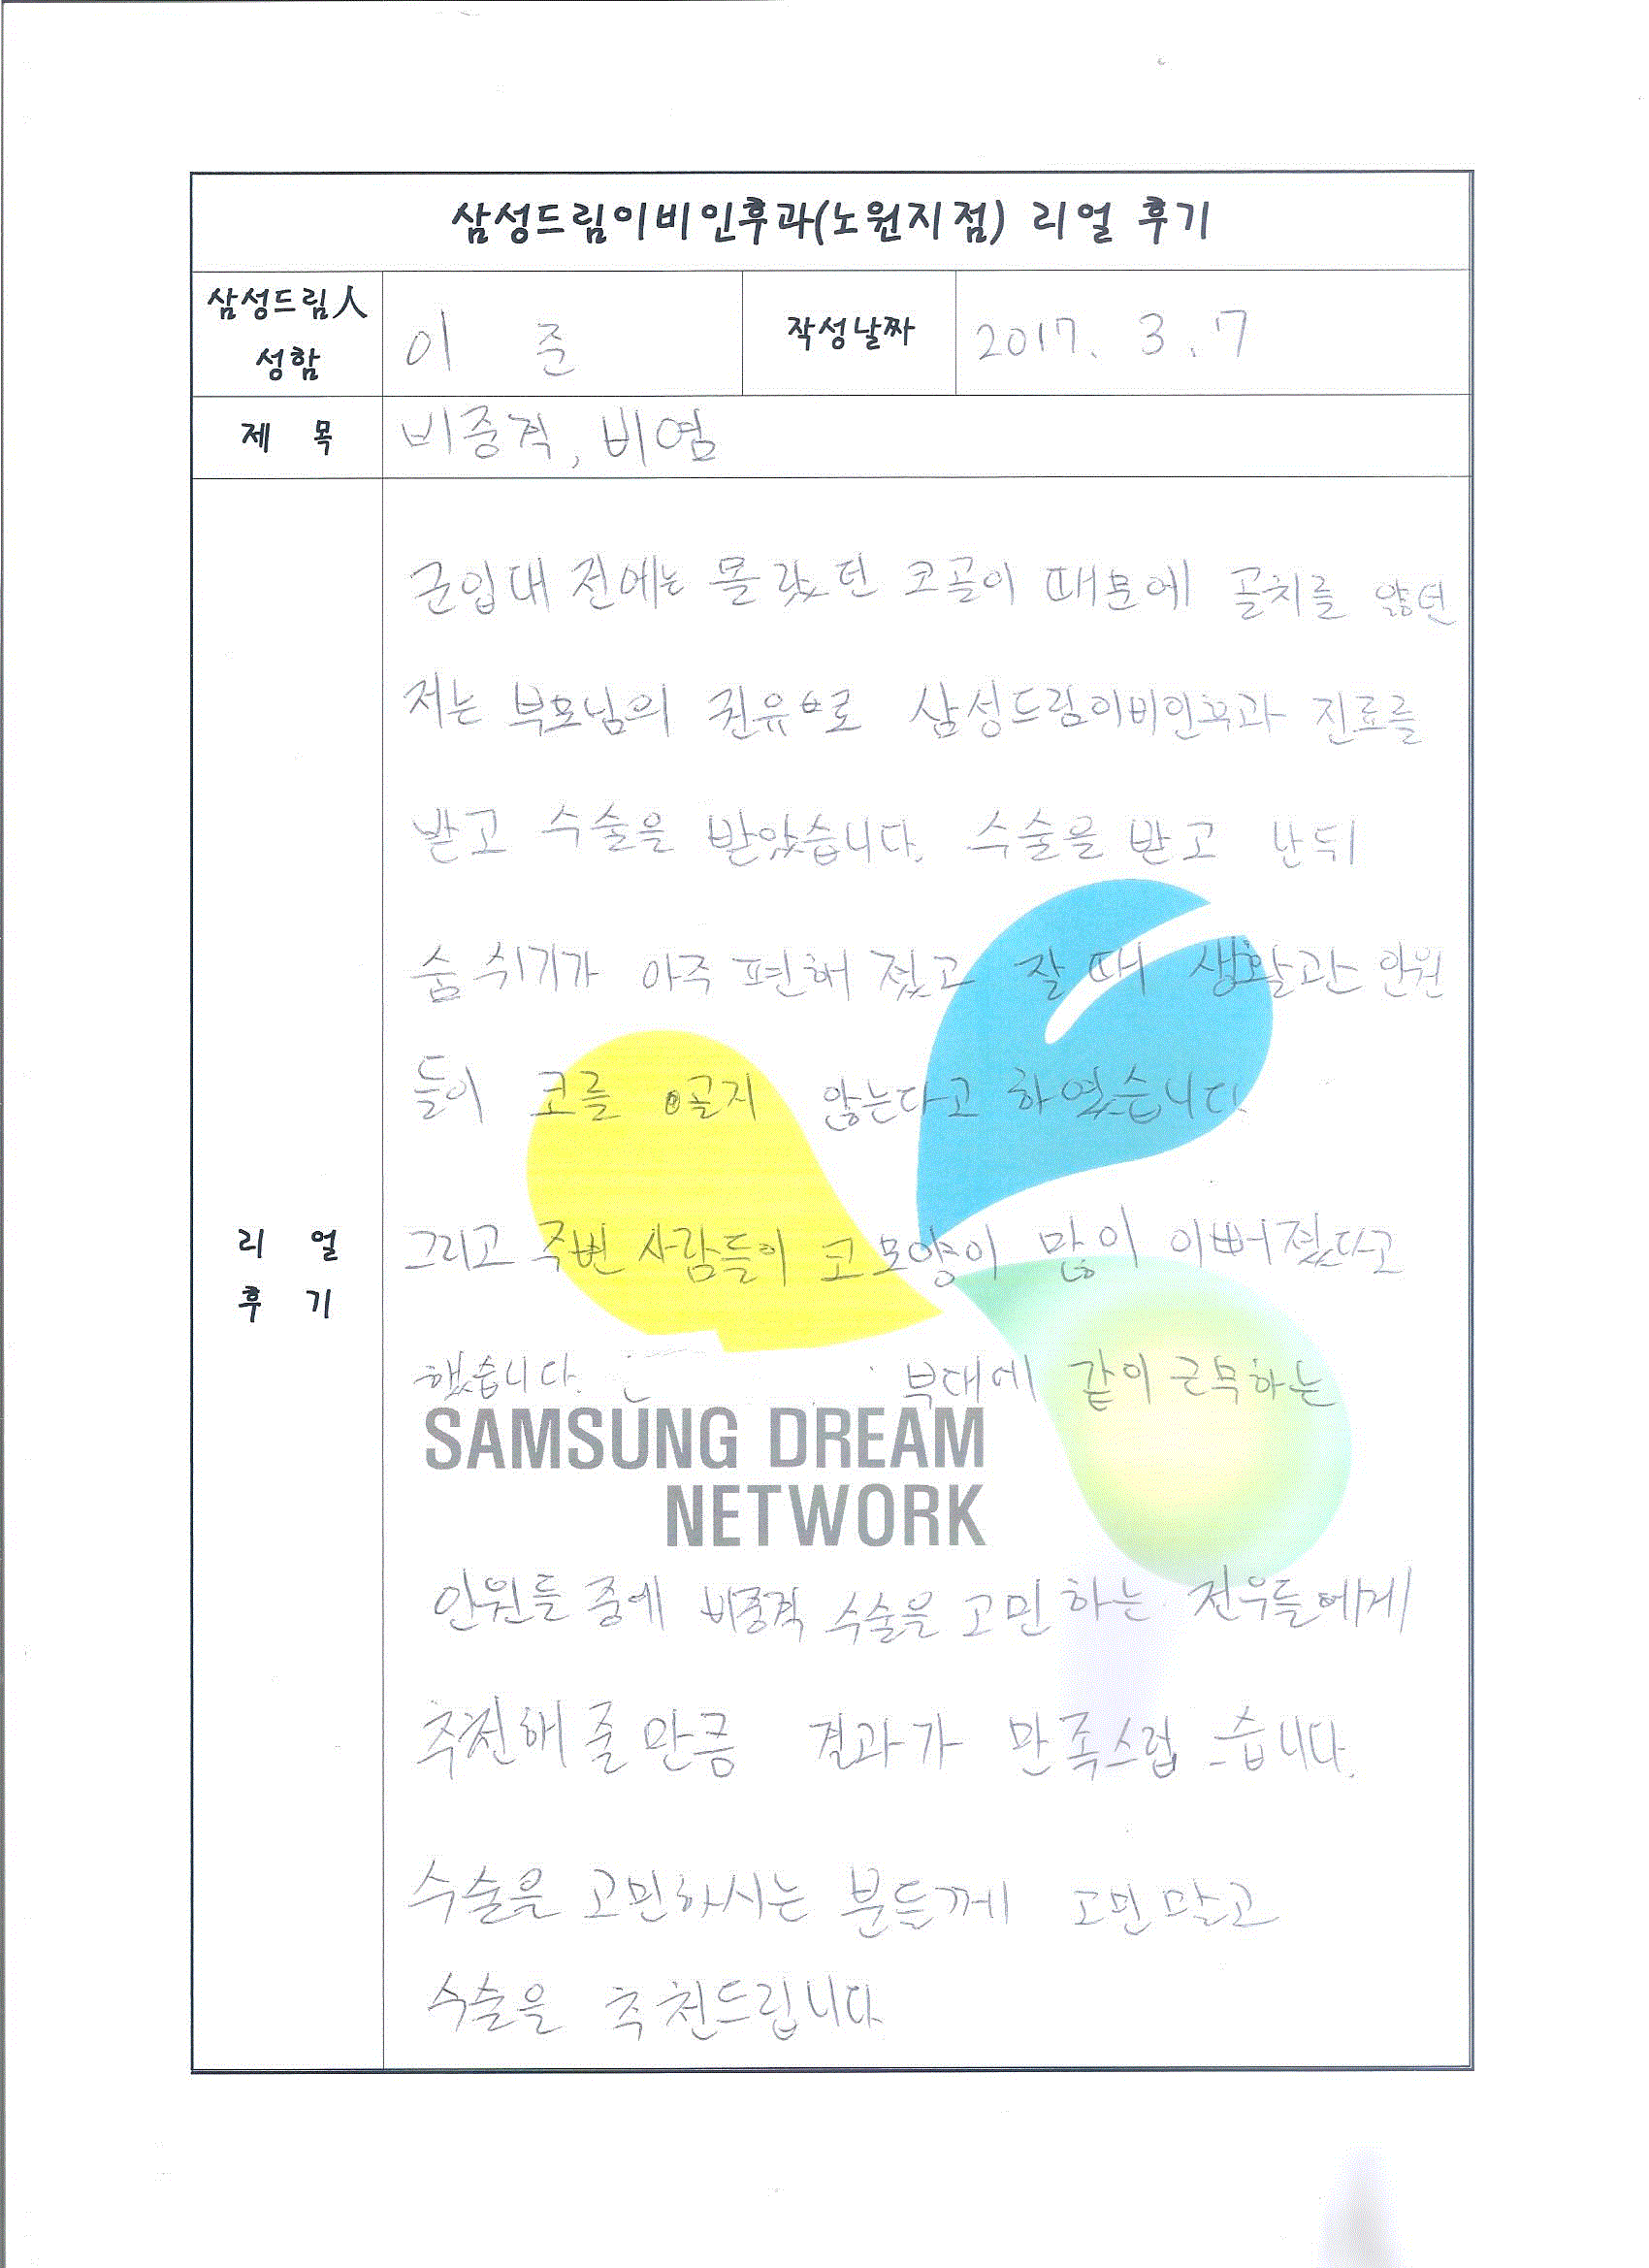 삼성드림이비인후과(노원지점) 리얼 후기
삼성드림人
성함
이 준
작성날짜
2017. 3. 7
제 목
비중격, 비염
군입대 전에는 몰랐던 코골이 때문에 골치를 앓던
저는 부모님의 권유으로 삼성드림이비인후과 진료를
받고 수술을 받았습니다. 수술을 받고 난뒤
숨 쉬기가 아주 편해 졌고 잘 때 생활관 인원
들이 코를 골지 않는다고 하였습니다.
리 얼
후 기
그리고 주변 사람들이 코 모양이 많이 이뻐졌다고
했습니다. 부대에 같이 근무하는
SAMSUNG DREAM
NETWORK
인원들 중에 비중격 수술을 고민 하는 전우들에게
추천해 줄 만큼 결과가 만족스럽 습니다.
수술을 고민하시는 분들께 고민 말고
수술을 추천드립니다